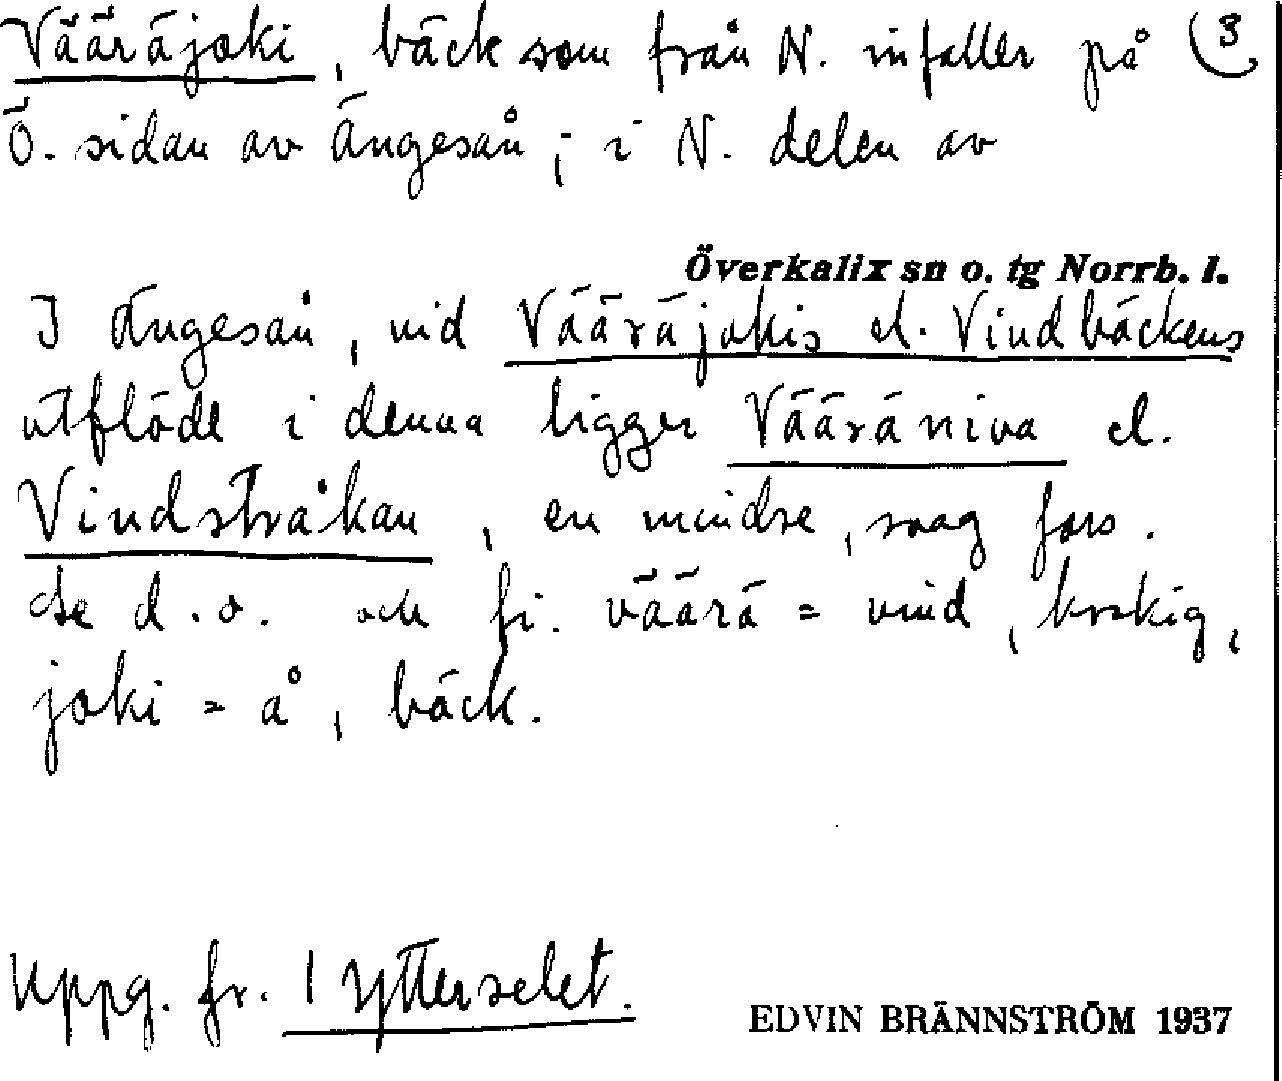 Vääräjoki, bäck som från N. infaller på (3
Ö. sidan av Ängesån; i N. delen av
Överkalix sn o. tg Norrb. l.
I Ängesån, vid Vääräjokis el. Vindbäckens
utflöde i denna ligger Vääräniva el.
Vindstråkan, en mindre, svag fors.
Se d. o. och fi. väärä = vind, krokig,
joki = å, bäck.
Uppg. fr. 1 Ytterselet.
EDVIN BRÄNNSTRÖM 1937